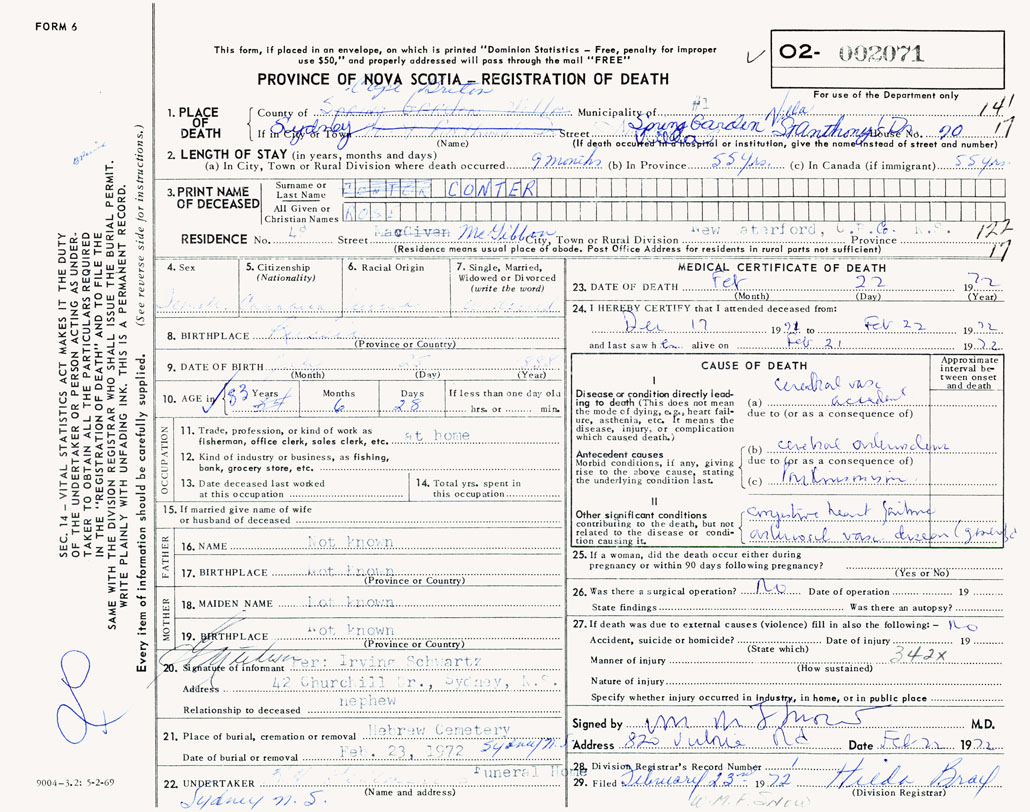 FORM 6
This form, if placed in an envelope, on which is printed "Dominion Statistics – Free, penalty for improper
use $50," and properly addressed will pass through the mail "FREE"
O2- 002071
For use of the Department only
PROVINCE OF NOVA SCOTIA – REGISTRATION OF DEATH
1. PLACE OF DEATH
County of Cape Breton Municipality of #1 141
If in City or Town Sydney Street Spring Garden Villa St Anthony Dr. House No. 70 17
(Name) (If death occurred in a hospital or institution, give the name instead of street and number)
2. LENGTH OF STAY (in years, months and days)
(a) In City, Town or Rural Division where death occurred 9 months (b) In Province 55 yrs. (c) In Canada (if immigrant) 55 yrs.
3. PRINT NAME OF DECEASED
Surname or Last Name CONTER
All Given or Christian Names Rose
RESIDENCE No. 49 Street McGibbon City, Town or Rural Division New Waterford, C.B.Co. Province N.S. 122
(Residence means usual place of abode. Post Office Address for residents in rural parts not sufficient) 17
4. Sex
5. Citizenship (Nationality)
6. Racial Origin
7. Single, Married, Widowed or Divorced (write the word)
8. BIRTHPLACE Russia
(Province or Country)
9. DATE OF BIRTH 25
(Month) (Day) (Year)
10. AGE in 83 Years Months 6 Days 28 If less than one day old hrs. or min.
OCCUPATION
11. Trade, profession, or kind of work as fisherman, office clerk, sales clerk, etc. at home
12. Kind of industry or business, as fishing, bank, grocery store, etc.
13. Date deceased last worked at this occupation
14. Total yrs. spent in this occupation
15. If married give name of wife or husband of deceased
FATHER
16. NAME Not known
17. BIRTHPLACE Not known
(Province or Country)
MOTHER
18. MAIDEN NAME Not known
19. BIRTHPLACE Not known
(Province or Country)
20. Signature of informant Per: Irving Schwartz
Address 42 Churchill Dr., Sydney, N.S.
Relationship to deceased nephew
21. Place of burial, cremation or removal Hebrew Cemetery
Date of burial or removal Feb. 23, 1972 Sydney N.S.
22. UNDERTAKER Funeral Home
(Name and address)
Sydney N.S.
MEDICAL CERTIFICATE OF DEATH
23. DATE OF DEATH Feb 22 1972
(Month) (Day) (Year)
24. I HEREBY CERTIFY that I attended deceased from:
Dec 17 1971 to Feb 22 1972
and last saw her alive on Feb 21 1972
CAUSE OF DEATH
Approximate interval between onset and death
I
Disease or condition directly leading to death (This does not mean the mode of dying, e.g., heart failure, asthenia, etc. It means the disease, injury, or complication which caused death.)
(a) cerebral vasc accident
due to (or as a consequence of)
Antecedent causes
Morbid conditions, if any, giving rise to the above cause, stating the underlying condition last.
(b) cerebral
due to (or as a consequence of)
(c) Parkinsonism
II
Other significant conditions contributing to the death, but not related to the disease or condition causing it.
congestive heart failure
vasc disease (general)
25. If a woman, did the death occur either during pregnancy or within 90 days following pregnancy?
(Yes or No)
26. Was there a surgical operation? No Date of operation 19
State findings Was there an autopsy?
27. If death was due to external causes (violence) fill in also the following:– No
Accident, suicide or homicide? Date of injury 19
(State which) 342X
Manner of injury
(How sustained)
Nature of injury
Specify whether injury occurred in industry, in home, or in public place
Signed by M.D.
Address 820 Victoria Rd Date Feb 22 1972
28. Division Registrar's Record Number
29. Filed February 23rd 1972 Hilda Bray
(Division Registrar)
W.M.F. SNOW
SEC. 14 – VITAL STATISTICS ACT MAKES IT THE DUTY
OF THE UNDERTAKER OR PERSON ACTING AS UNDER-
TAKER TO OBTAIN ALL THE PARTICULARS REQUIRED
IN THE "REGISTRATION OF DEATH" AND TO FILE THE
SAME WITH THE DIVISION REGISTRAR WHO SHALL ISSUE THE BURIAL PERMIT.
WRITE PLAINLY WITH UNFADING INK. THIS IS A PERMANENT RECORD.
Every item of information should be carefully supplied. (See reverse side for instructions.)
9004-3.2: 5-2-69